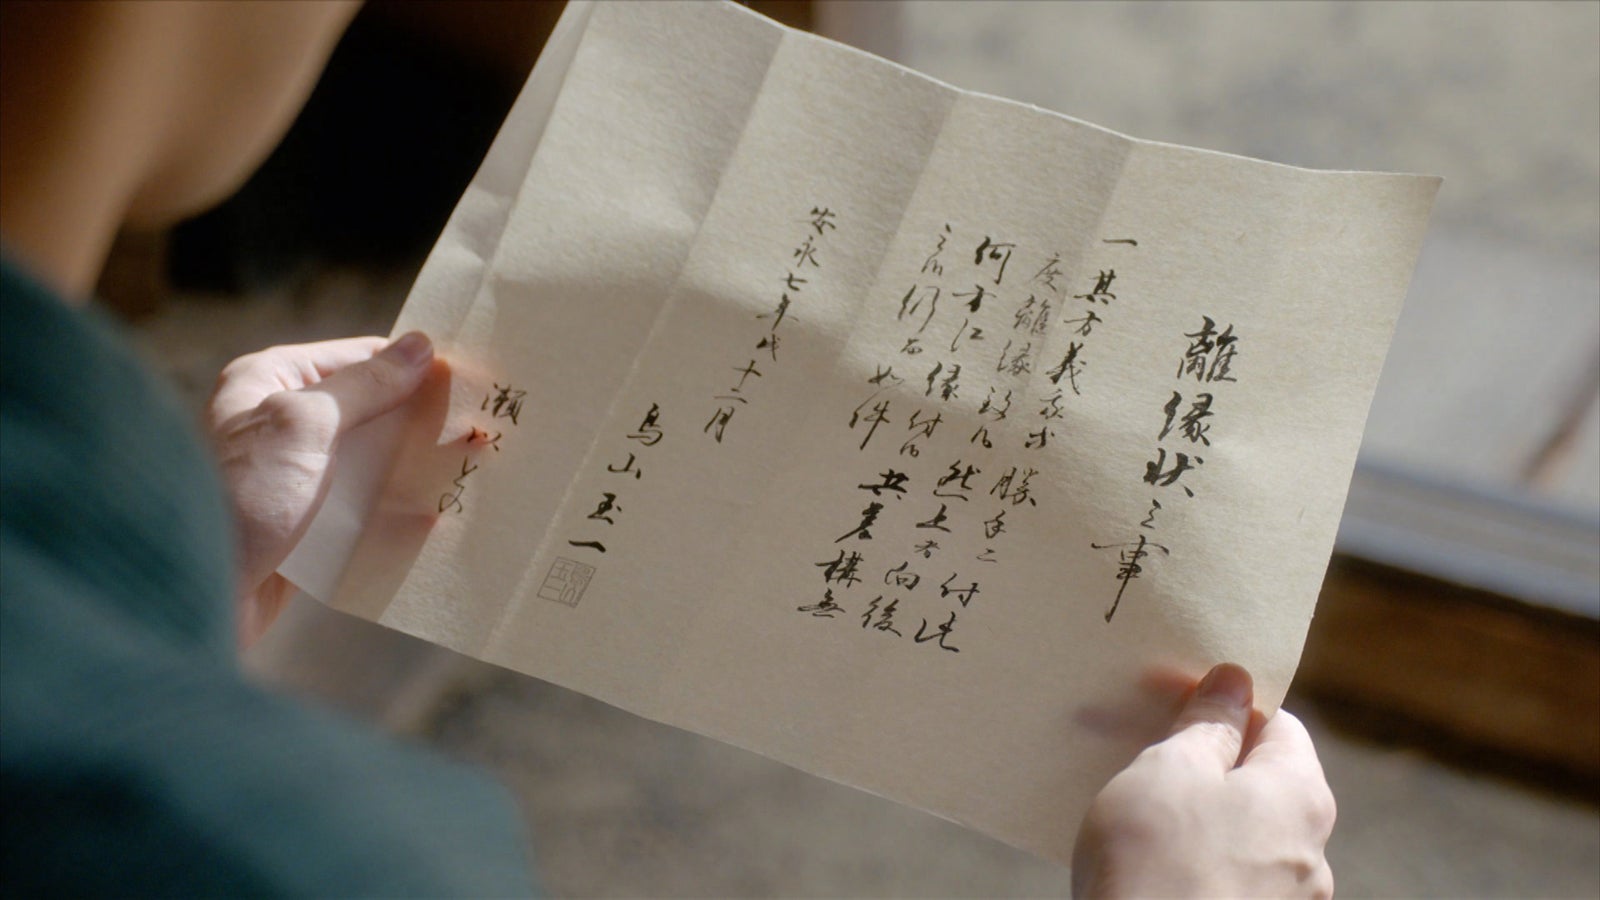 離縁状之事
一其方義我等勝手ニ付此
度離縁致候然上者向後
何方江縁付候共差構無
之候仍而如件
安永七年戌十二月
鳥山玉一
瀬以との